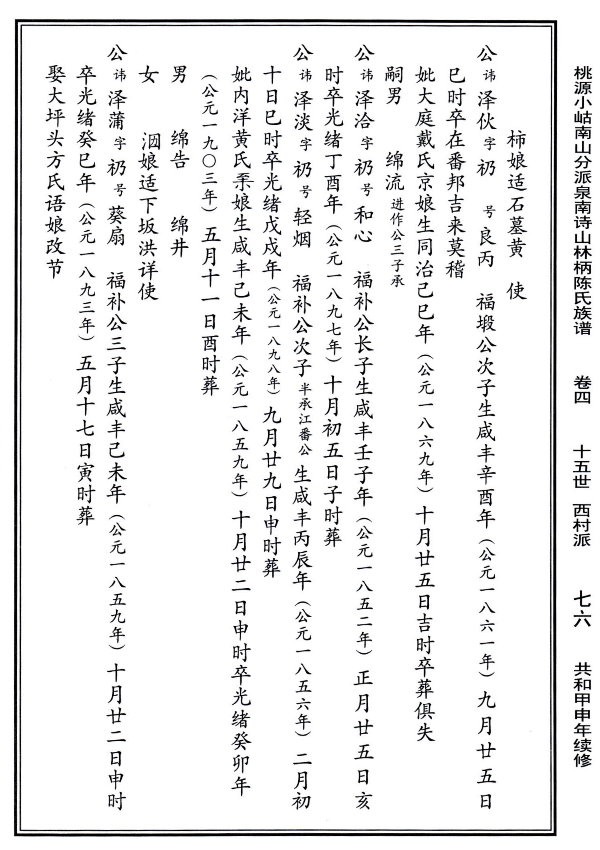 桃源小岵南山分派泉南诗山林柄陈氏族谱 卷四 十五世 西村派 七六 共和甲申年续修
柿娘适石墓黄 使
公讳泽伙字礽 号良丙 福塅公次子生咸丰辛酉年（公元一八六一年）九月廿五日
巳时卒在番邦吉来莫稽
妣大庭戴氏京娘生同治己巳年（公元一八六九年）十月廿五日吉时卒葬俱失
嗣男 绵流进作公三子承
公讳泽洽字礽号和心 福补公长子生咸丰壬子年（公元一八五二年）正月廿五日亥
时卒光绪丁酉年（公元一八九七年）十月初五日子时葬
公讳泽淡字礽号轻烟 福补公次子半承江番公生咸丰丙辰年（公元一八五六年）二月初
十日巳时卒光绪戊戌年（公元一八九八年）九月廿九日申时葬
妣内洋黄氏娘生咸丰己未年（公元一八五九年）十月廿二日申时卒光绪癸卯年
（公元一九〇三年）五月十一日酉时葬
男 绵告 绵井
女 洇娘适下坂洪详使
公讳泽蒲字礽号葵扇 福补公三子生咸丰己未年（公元一八五九年）十月廿二日申时
卒光绪癸巳年（公元一八九三年）五月十七日寅时葬
娶大坪头方氏语娘改节